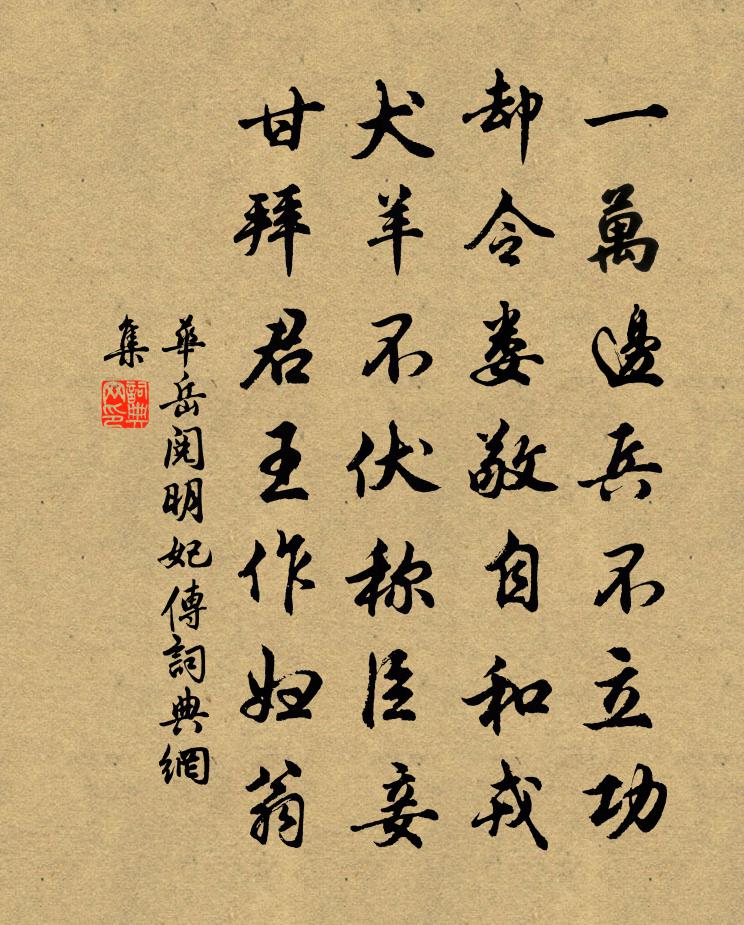 一萬邊兵不立功
却令婁敬自和戎
犬羊不伏称臣妾
甘拜君王作妇翁
華岳閱明妃傳詞典網
集
詞典
网印